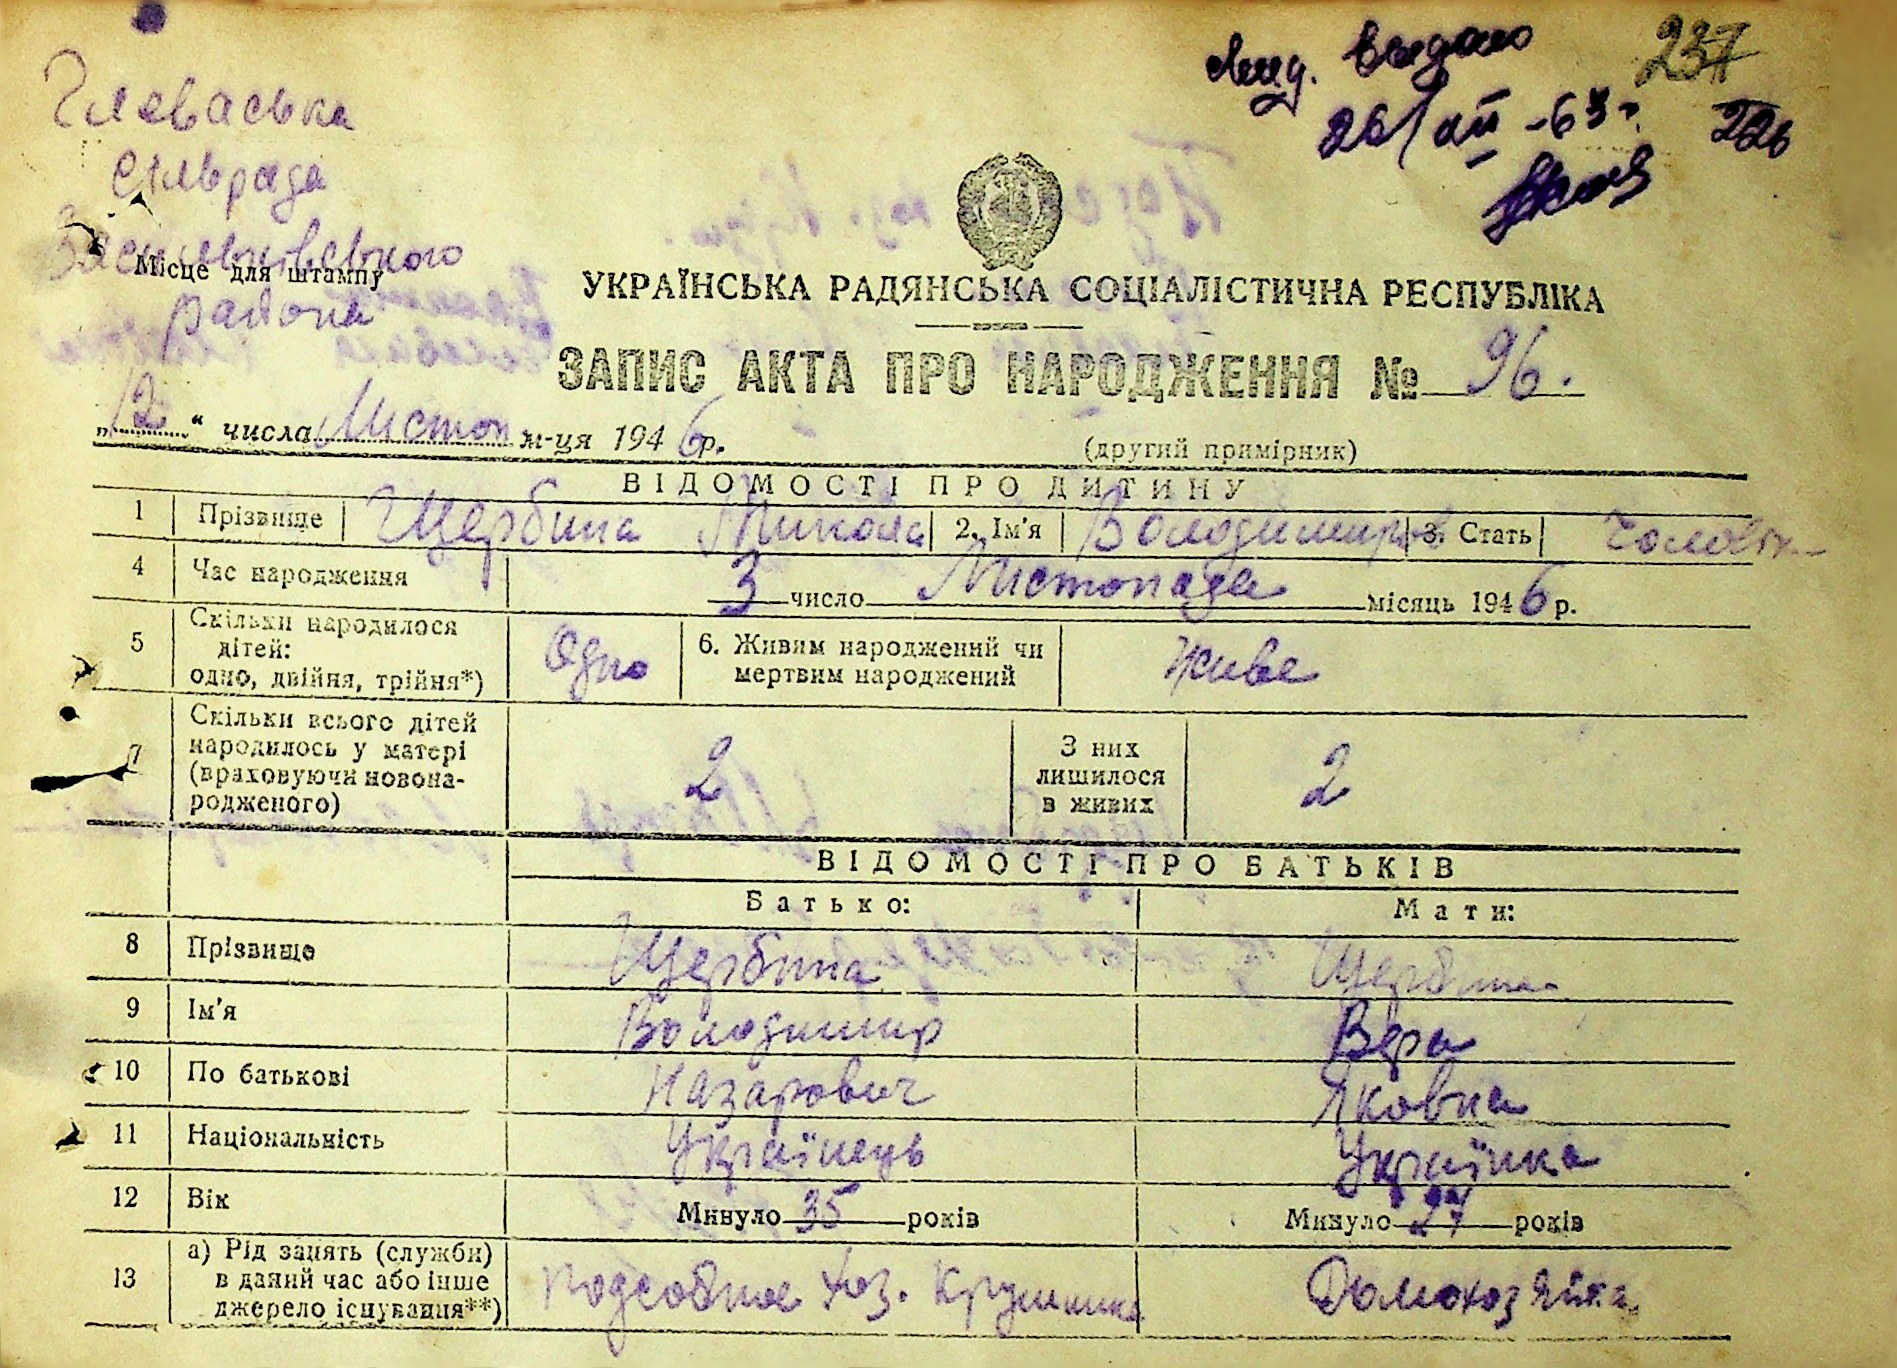 Глеваська
сільрада
Васильківського
Місце для штампу
района
Свид. выдано
26/XII-63 г.
237
226
УКРАЇНСЬКА РАДЯНСЬКА СОЦІАЛІСТИЧНА РЕСПУБЛІКА
ЗАПИС АКТА ПРО НАРОДЖЕННЯ № 96.
„12“ числа Листоп м-ця 1946 р.
(другий примірник)
ВІДОМОСТІ ПРО ДИТИНУ
1 Прізвище Щербина Микола 2. Ім'я Володимиров 3. Стать Чоловіч
4 Час народження 3 число Листопада місяць 1946 р.
5 Скільки народилося
дітей:
одно, двійня, трійня*) Одно
6. Живим народжений чи
мертвим народжений Живе
7 Скільки всього дітей
народилось у матері
(враховуючи новона-
родженого) 2
З них
лишилося
в живих 2
ВІДОМОСТІ ПРО БАТЬКІВ
Батько: Мати:
8 Прізвище Щербина Щербина
9 Ім'я Володимир Вера
10 По батькові Назарович Яковна
11 Національність Українець Українка
12 Вік Минуло 35 років Минуло 27 років
13 а) Рід занять (служби)
в даний час або інше
джерело існування**) Подсобное хоз. Домохозяйка